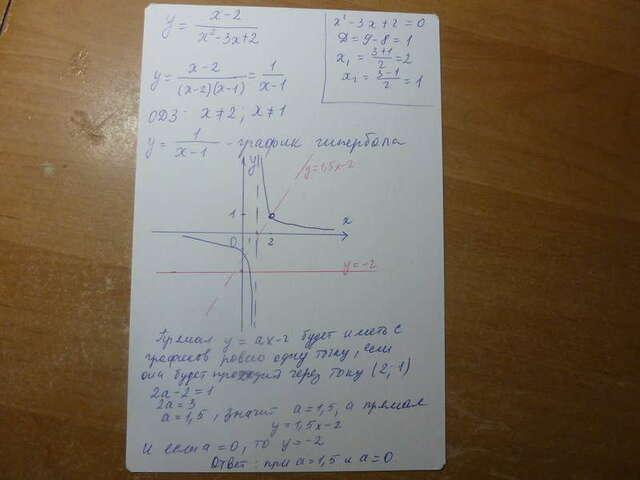 y = (x-2)/(x²-3x+2)
x²-3x+2=0
D=9-8=1
x₁ = (3+1)/2 = 2
x₂ = (3-1)/2 = 1
y = (x-2)/((x-2)(x-1)) = 1/(x-1)
ОДЗ: x≠2; x≠1
y = 1/(x-1) - график гипербола
y
y=1,5x-2
1
x
0
1
2
y=-2
Прямая y = ax-2 будет иметь с
графиков ровно одну точку, если
она будет проходит через току (2; 1)
2a-2=1
2a=3
a=1,5, значит a=1,5, а прямая
y=1,5x-2
И если a=0, то y=-2
Ответ: при a=1,5 и a=0.